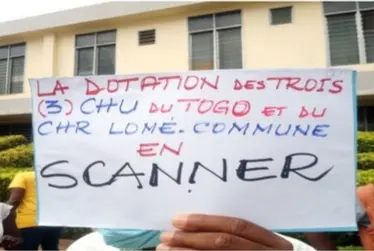 LA DOTATION DES TROIS
(3) CHU DU TOGO ET DU
CHR LOMÉ-COMMUNE
EN
SCANNER